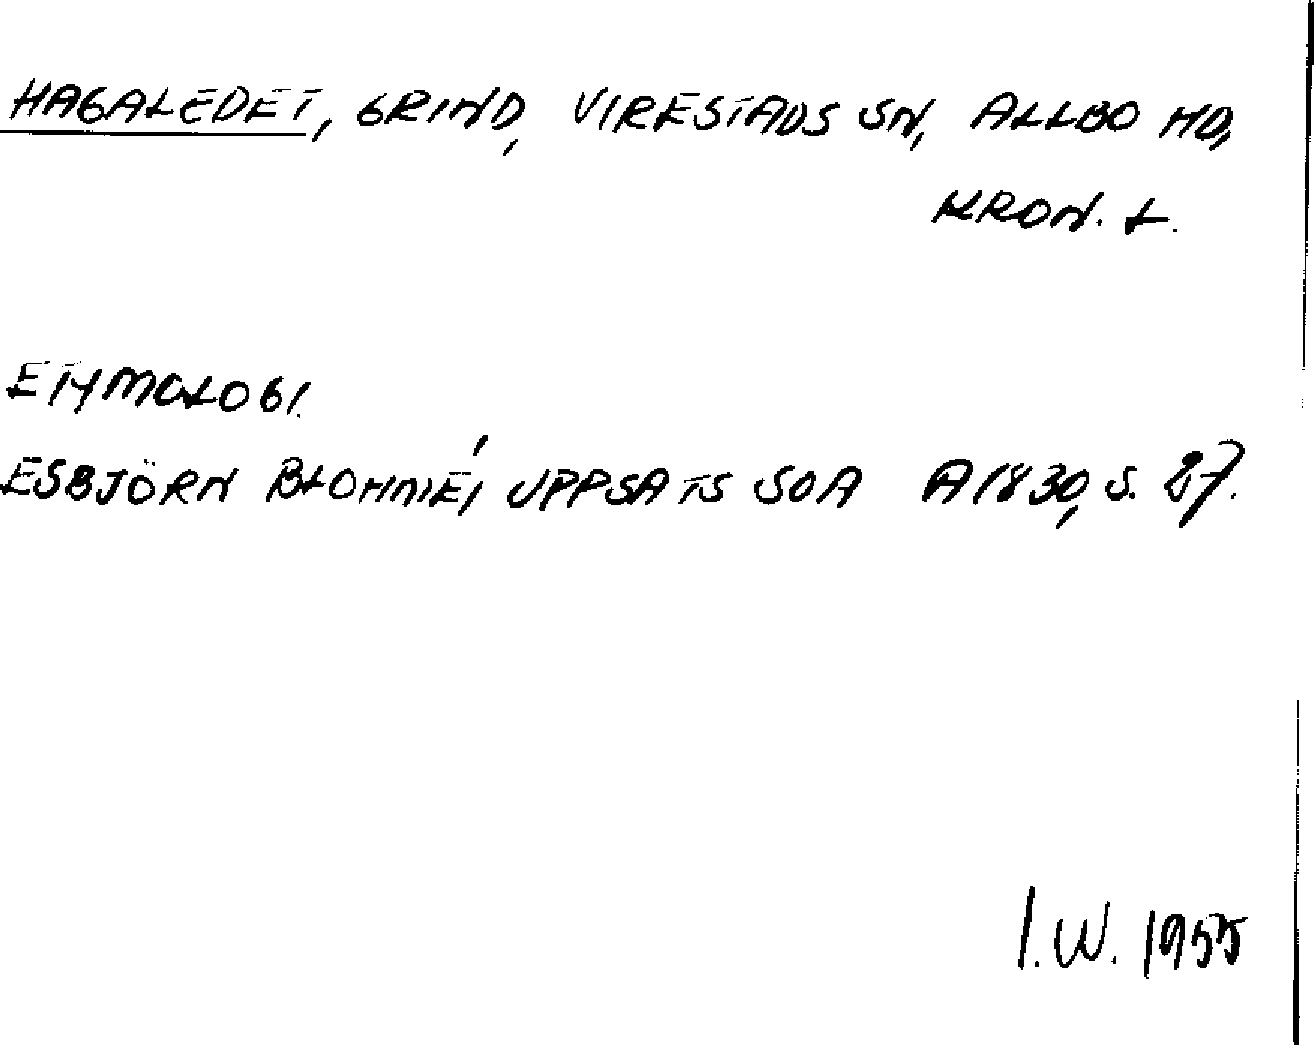 HAGALEDET, GRIND, VIRESTADS SN, ALLBO HD,
KRON. L.
ETYMOLOGI.
ESBJÖRN BLOHMÉ, UPPSATS SOA A 1830, S. 27.
I.W. 1955